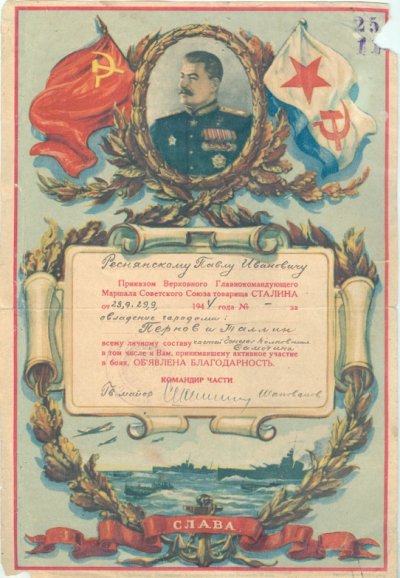 25
Реснянскому Павлу Ивановичу
Приказом Верховного Главнокомандующего
Маршала Советского Союза товарища СТАЛИНА
от 23,9.29,9 1944 года № — за
овладение городами:
Пернов и Таллин
всему личному составу частей
в том числе и Вам, принимавшему активное участие
в боях, ОБ'ЯВЛЕНА БЛАГОДАРНОСТЬ.
КОМАНДИР ЧАСТИ
Гв. майор Шаповалов
СЛАВА